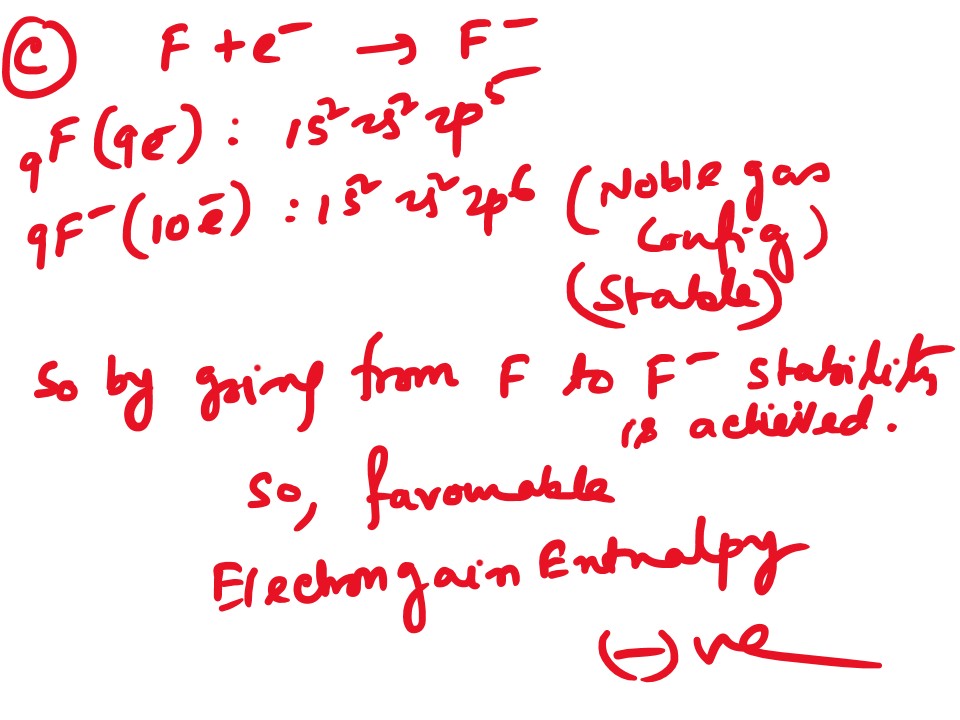 Ⓒ F + e⁻ → F⁻
₉F (9e⁻) : 1s² 2s² 2p⁵
₉F⁻ (10e⁻) : 1s² 2s² 2p⁶ (Noble gas
config)
(Stable)
So by going from F to F⁻ stability
is achieved.
So, favourable
Electron gain Enthalpy
(−)ve